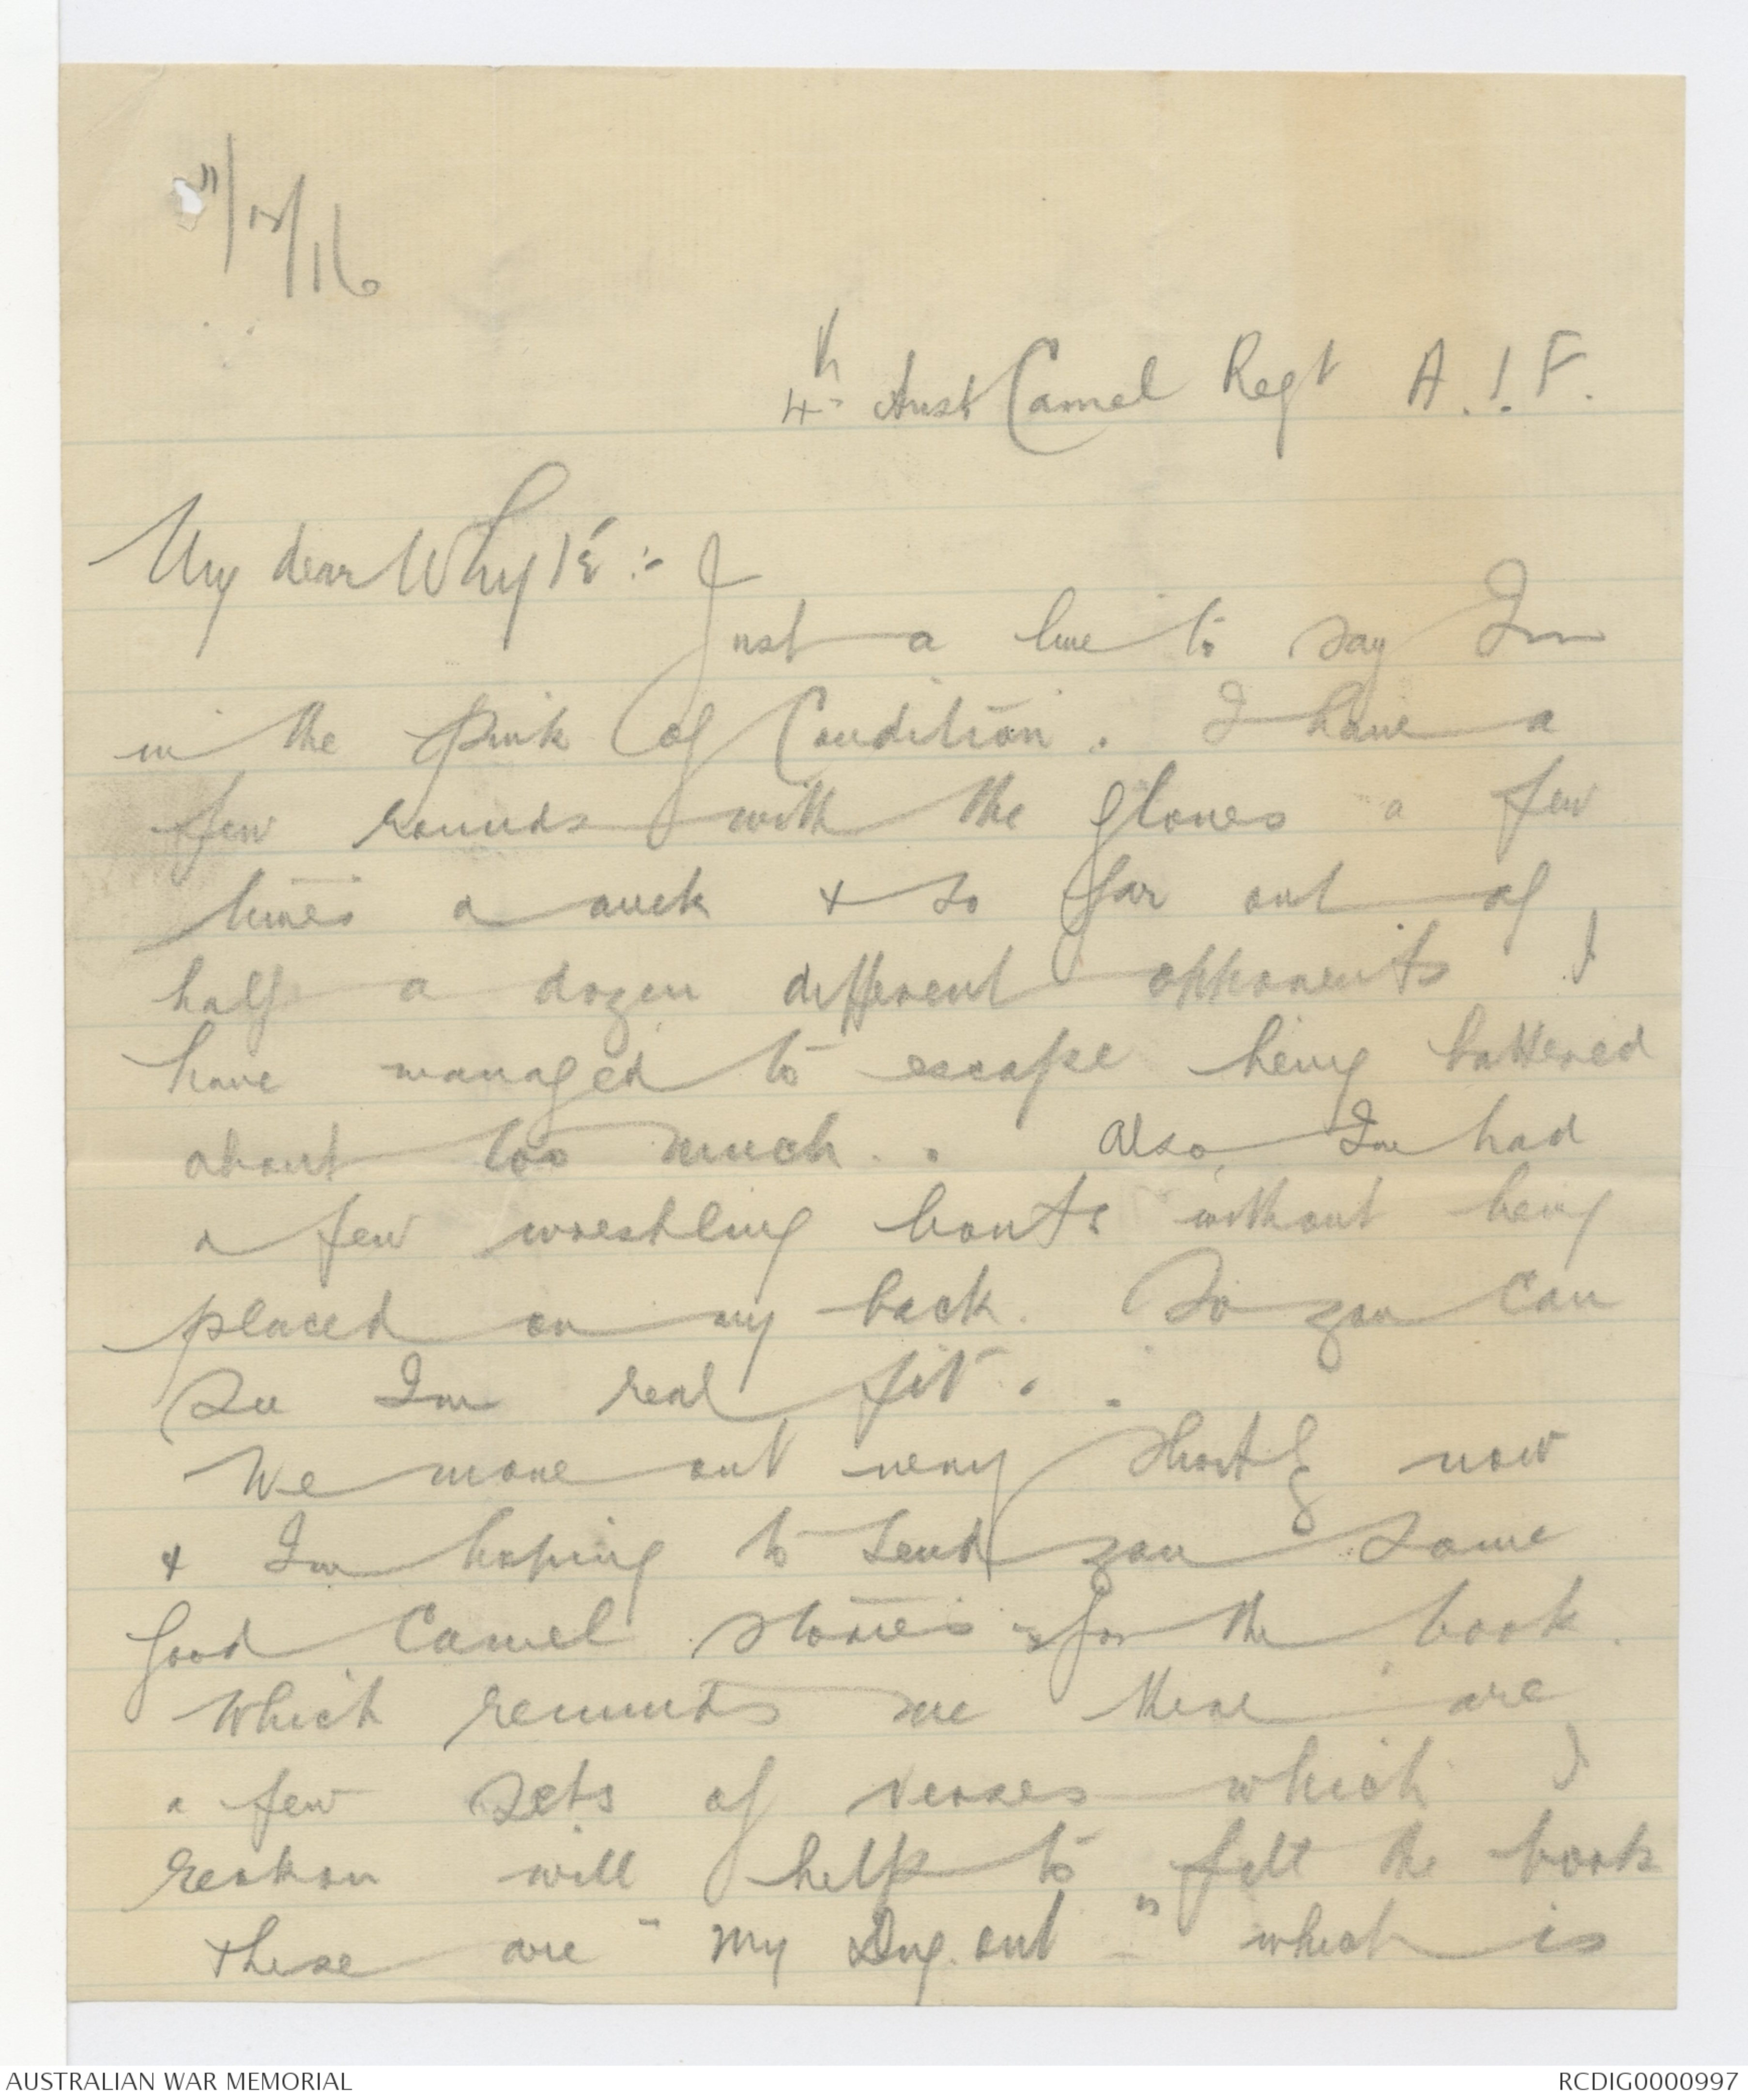 11/12/16
4th Aust Camel Regt A.I.F.
My dear Whyte :-
Just a line to say Im
in the pink of Condition. I have a
few rounds with the gloves a few
times a week & so far out of
half a dozen different opponents I
have managed to escape being battered
about too much. . Also, Ive had
a few wrestling bouts without being
placed on my back. So you can
see Im real fit. .
We move out very shortly now
& Im hoping to send you some
good Camel stories for the book.
Which reminds me there are
a few sets of verses which I
reckon will help to fill the book
these are "My Dug.out" which is
AUSTRALIAN WAR MEMORIAL
RCDIG0000997